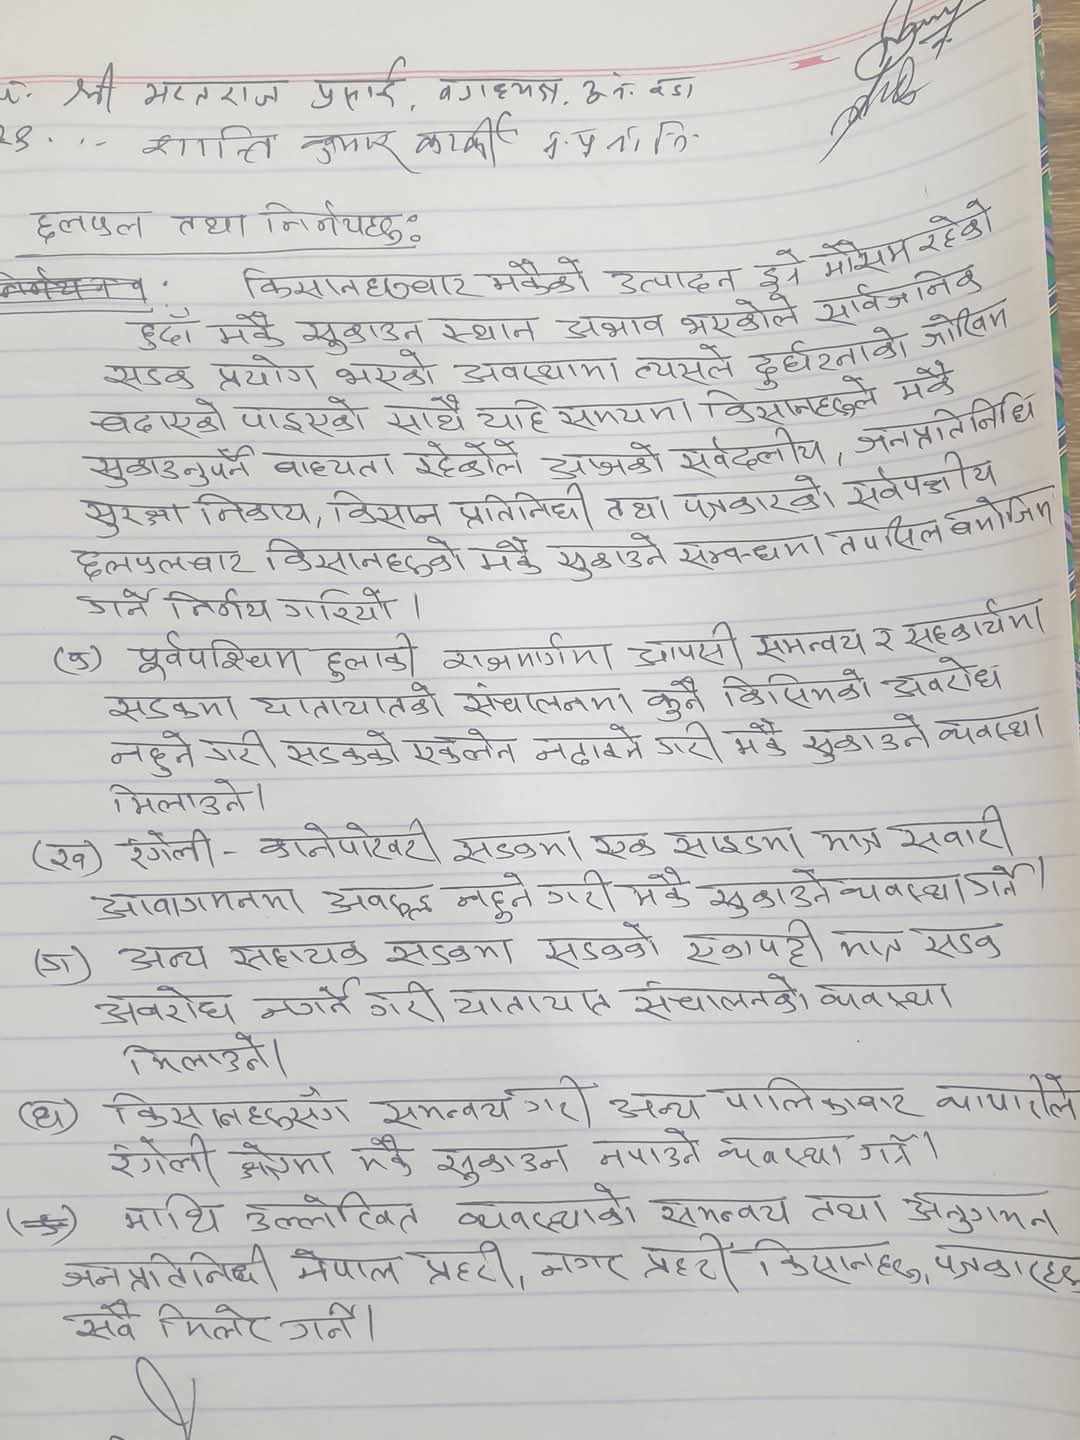 श्री भरतराज
शान्ति कुमार कार्की
छलफल तथा निर्णयहरुः
किसानहरुबाट मकैको उत्पादन हुने मौसम रहेको
हुदाँ मकै सुकाउन स्थान अभाव भएकोले सार्वजनिक
सडक प्रयोग भएको अवस्थामा त्यसले दुर्घटनाको जोखिम
बढाएको पाइएको साथै यहि समयमा किसानहरुले मकै
सुकाउनुपर्ने बाध्यता रहेकोले आजको सर्वदलीय, जनप्रतिनिधि
सुरक्षा निकाय, किसान प्रतिनिधी तथा पत्रकारको सर्वपक्षीय
छलफलबाट किसानहरुको मकै सुकाउने सम्बन्धमा तपसिल बमोजिम
गर्ने निर्णय गरियो ।
(क) पूर्वपश्चिम हुलाकी राजमार्गमा आपसी समन्वय र सहकार्यमा
सडकमा यातायातको संचालनमा कुनै किसिमको अवरोध
नहुने गरी सडकको एकलेन नढाक्ने गरी मकै सुकाउने व्यवस्था
मिलाउने।
(ख) रंगेली - कानेपोखरी सडकमा एक साइडमा मात्र सवारी
आवागमनमा अवरुद्ध नहुने गरी मकै सुकाउने व्यवस्था गर्ने।
(ग) अन्य सहायक सडकमा सडकको एकापट्टी मात्र सडक
अवरोध नगर्ने गरी यातायात संचालनको व्यवस्था
मिलाउने।
(घ) किसानहरुसँग समन्वय गरी अन्य पालिकाबाट व्यापारीले
रंगेली क्षेत्रमा मकै सुकाउन नपाउने व्यवस्था गर्ने।
(ङ) माथि उल्लेखित व्यवस्थाको समन्वय तथा अनुगमन
जनप्रतिनिधी नेपाल प्रहरी, नगर प्रहरी किसानहरु, पत्रकारहरु
सबै मिलेर गर्ने।